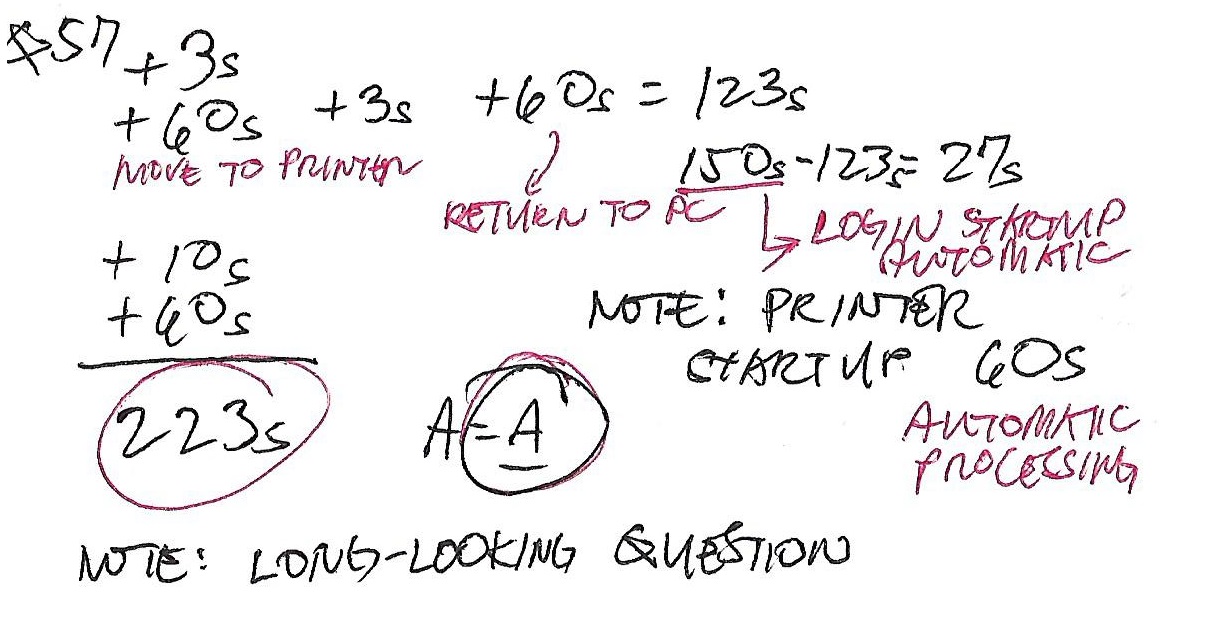 *57 + 3s
+60s +3s +60s = 123s
MOVE TO PRINTER
RETURN TO PC
150s-123s=27s
LOGIN STARTUP
AUTOMATIC
+ 10s
+60s
223s
NOTE: PRINTER
STARTUP 60s
AUTOMATIC
PROCESSING
A=A
NOTE: LONG-LOOKING QUESTION